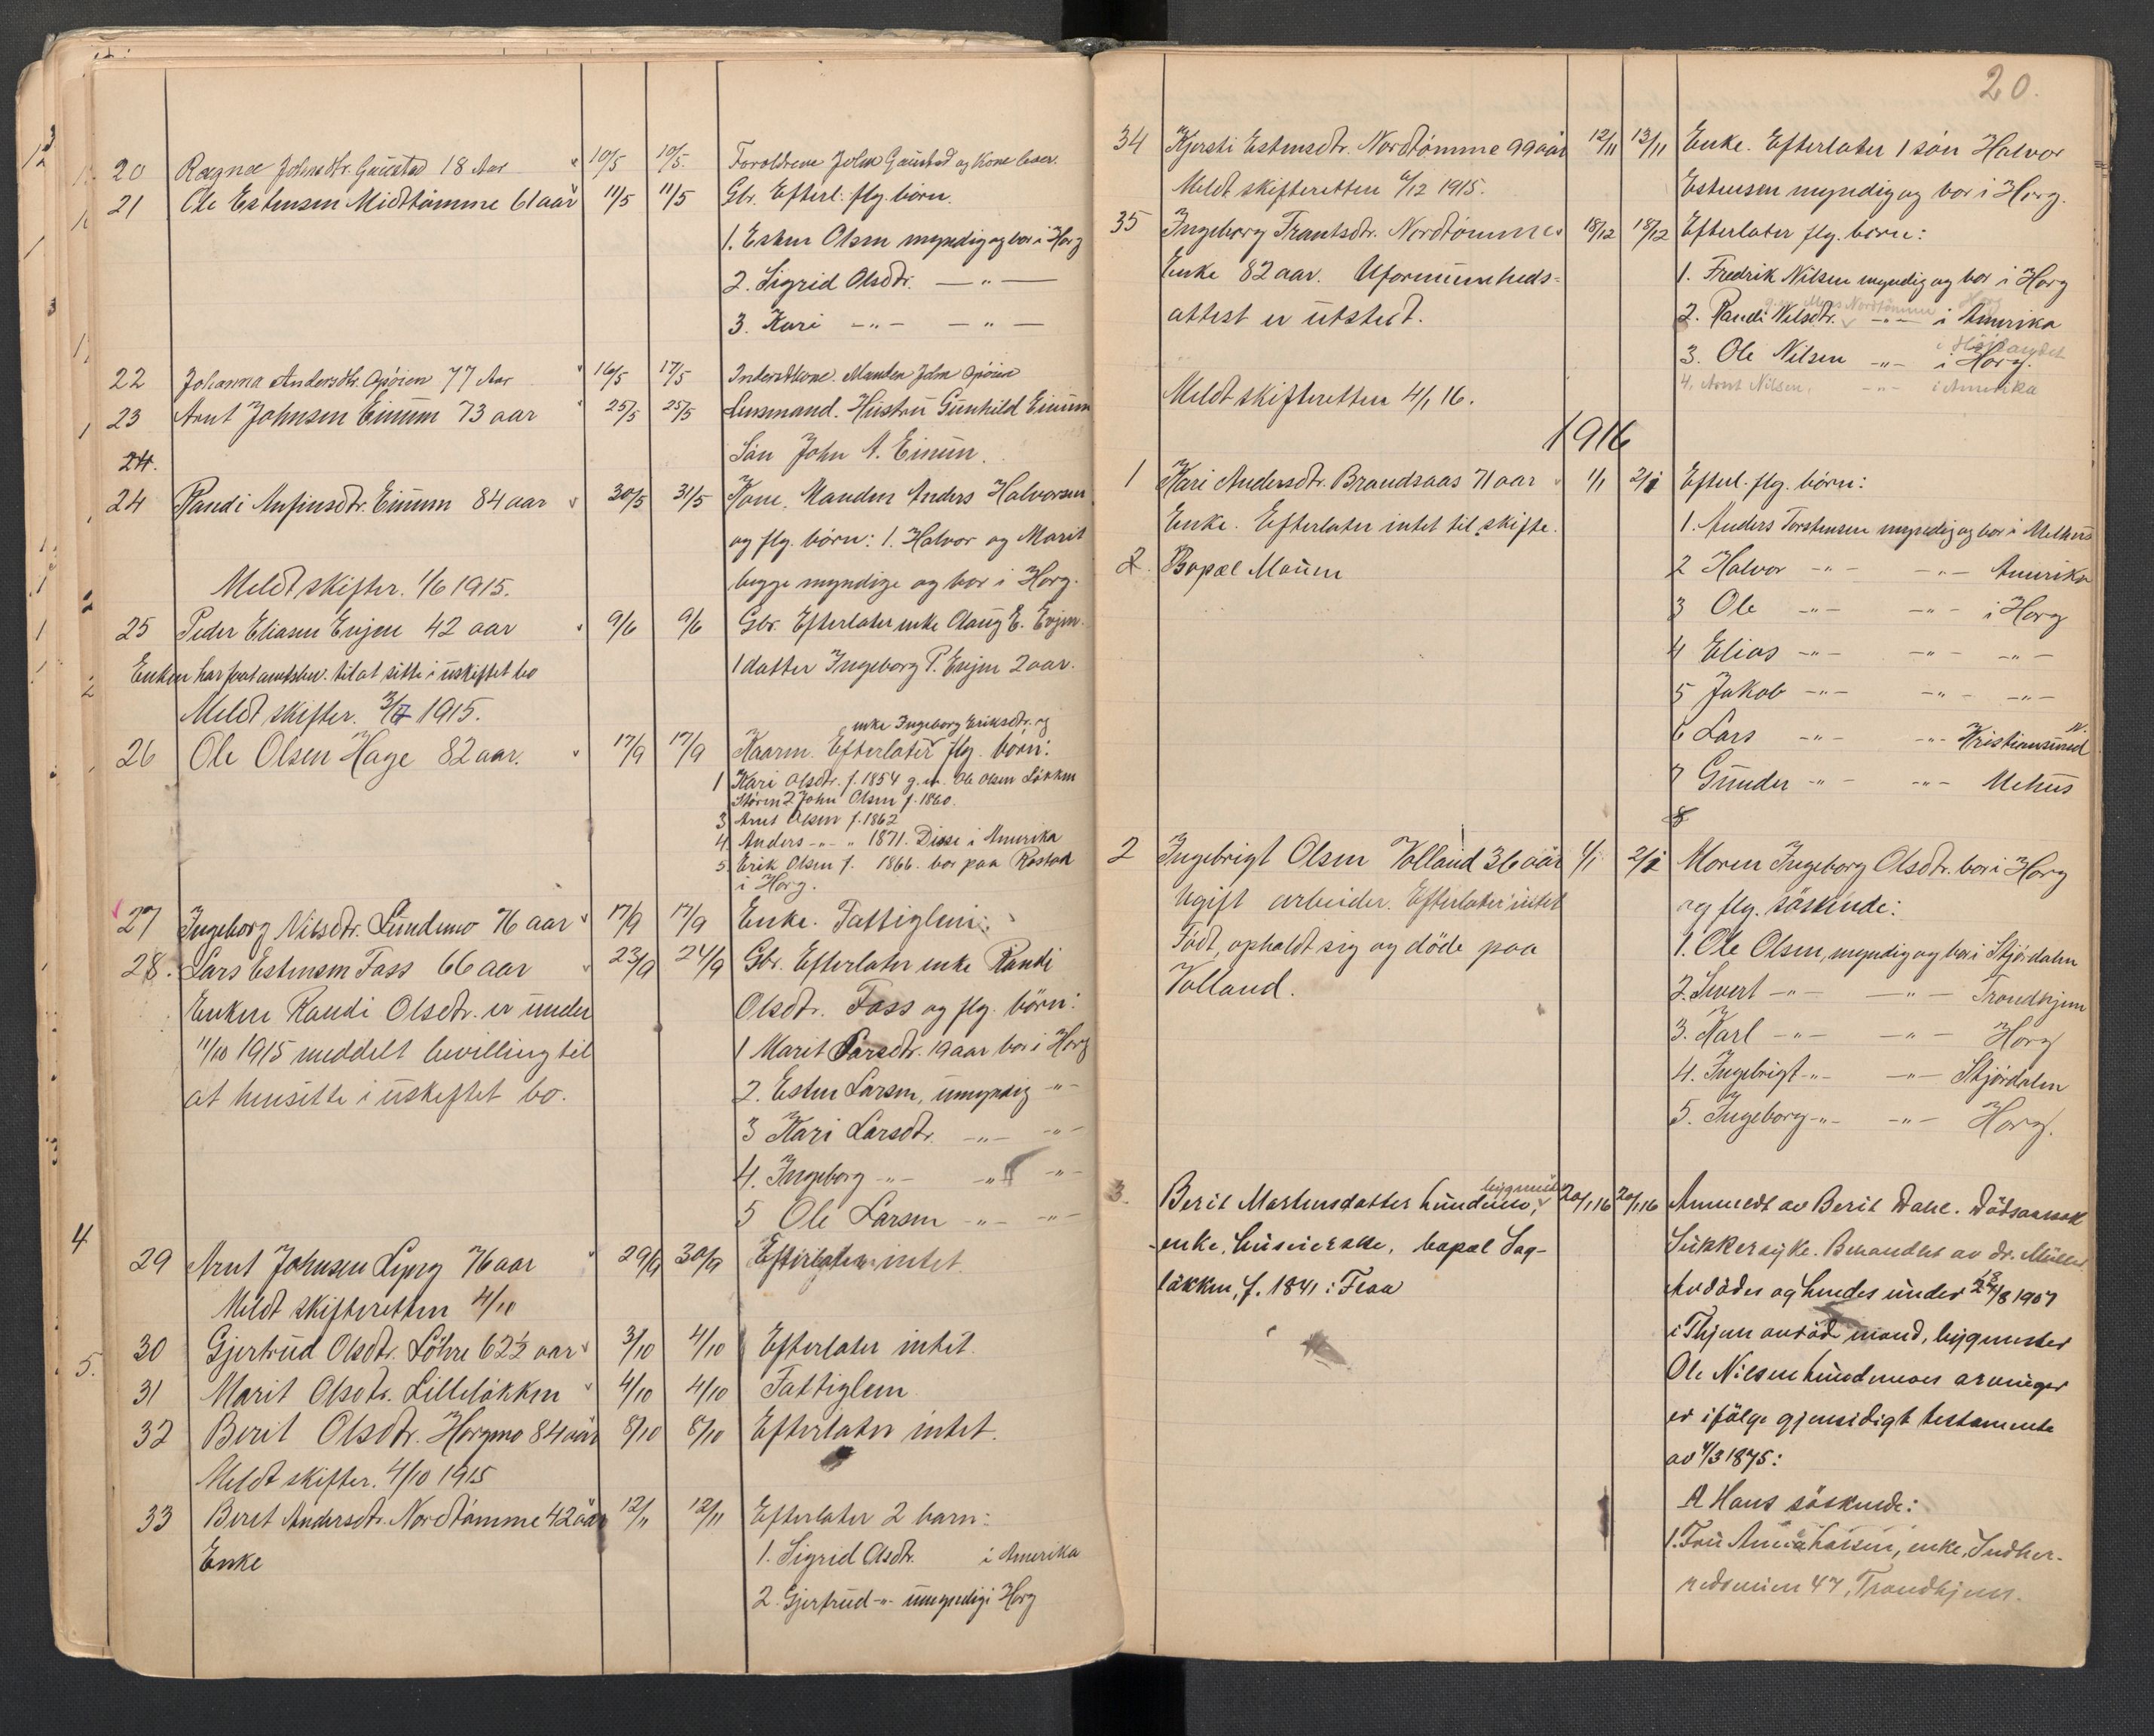 20 Ragna Johnsdtr. Gaustad 18 Aar 10/5 10/5. Forældrene John Gaustad og Kone lever.
21 Ole Estensen Midttømme 61 aar 11/5 11/5 Gbr. Efterl. flg. børn.
1. Esten Olsen myndig og bor i Horg
2. Sigrid Olsdtr. — " —
3. Kari — " — — " —
22 Johanna Andersdtr. 77 Aar 16/5 17/5 Manden John
23 Arnt Johnsen Einum 73 aar 25/5 25/5 Lensmand. Hustru Gunhild Einum
Søn John A. Einum.
24.
24 Randi Anfinsdtr. Einum 84 aar 30/5 31/5 Kone. Manden Anders Halvorsen
og flg. børn: 1. Halvor og Marit
begge myndige og bor i Horg.
Meldt skifter. 1/6 1915.
25 Peder Eliasen Evjen 42 aar 9/6 9/6 Gbr. Efterlater enke Olaug E. Evjen.
Enken har faat amtsbev. til at sitte i uskiftet bo 1 datter Ingeborg P. Evjen 2 aar.
Meldt skifter. 3/7 1915.
enke Ingeborg Eriksdtr. og
26 Ole Olsen Hage 82 aar. 17/9 17/9 Kaarm. Efterlater flg. børn:
1 Kari Olsdtr. f. 1854 g.m. Ole Olsen Løkken
Støren 2 John Olsen f. 1860.
3 Arnt Olsen f. 1862
4 Anders - " - " 1871. Disse i Amerika
5. Erik Olsen f. 1866. bor paa Rostad
i Horg.
27 Ingeborg Nilsdtr. Lundemo 76 aar 17/9 17/9 Enke. Fattiglem.
28. Lars Estensen Fass 66 aar 23/9 24/9 Gbr. Efterlater enke Randi
Enken Randi Olsdtr. er under Olsdtr. Fass og flg. børn:
11/10 1915 meddelt bevilling til 1 Marit Larsdtr. 19 aar bor i Horg
at hensitte i uskiftet bo. 2. Esten Larsen, umyndig - " -
3 Kari Larsdtr. - " - - " -
4. Ingeborg - " - - " - - " -
5 Ole Larsen - " - - " -
29 Arnt Johnsen Lyng 76 aar 29/9 30/9 Efterlater intet.
Meldt skifteretten 4/10
30 Gjertrud Olsdtr. Løhre 62½ aar 3/10 4/10 Efterlater intet.
31 Marit Olsdtr. Lilleløkken 4/10 4/10 Fattiglem
32 Berit Olsdtr. Horgmo 84 aar 8/10 8/10 Efterlater intet.
Meldt skifter. 4/10 1915
33 Beret Andersdtr. Nordtømme 42 aar 12/11 12/11 Efterlater 2 barn:
Enke 1. Sigrid Olsdtr. i Amerika
2. Gjertrud - " - umyndig i Horg
20.
34 Kjersti Estensdtr. Nordtømme 99 aar 12/11 13/11 Enke. Efterlater 1 søn Halvor
Meldt skifteretten 6/12 1915. Estensen myndig og bor i Horg.
35 Ingeborg Frantsdtr. Nordtømme 18/12 18/12 Efterlater flg. børn:
Enke 82 aar. Uformuenheds- 1. Fredrik Nilsen myndig og bor i Horg
attest er utstedt. 2. Randi Nilsdtr. - " - i Amerika
3. Ole Nilsen - " - i Horg.
4. Arnt Nilsen. - " - i Amerika
Meldt skifteretten 4/1 16.
1916
1 Kari Andersdtr. Brandsaas 71 aar 1/1 2/1 Efterl. flg. børn:
Enke. Efterlater intet til skifte. 1. Anders Torstensen myndig og bor i Melhus
2. Bopæl Mauen 2 Halvor - " - - " - Amerika
3 Ole - " - - " - i Horg
4 Elias - " - - " - - " -
5 Jakob - " - - " - - " -
6 Lars - " - - " - Kristiansund N.
7 Gunder - " - - " - Mehus
8
2 Ingebrigt Olsen Volland 36 aar 1/1 2/1 Moren Ingeborg Olsdtr. bor i Horg
Ugift arbeider. Efterlater intet og flg. søskende:
Født, opholdt sig og døde paa 1. Ole Olsen, myndig og bor i Stjørdalen
Volland. 2. Sivert - " - — " — Trondhjem
3. Karl - " - — " — Horg
4. Ingebrigt - " - — " — Stjørdalen
5. Ingeborg - " - — " — Horg.
3. Berit Mortensdatter Lundemo, 20/1 16 20/1 16 Anmeldt av Berit Dahl. Dødsaarsak
enke, huseierske, bopæl Sag- Sukkersyke. Behandlet av dr. Müller.
løkken, f. 1841 i Flaa Avdødes og hendes under 1907
i Thjem avdød mand, bygmester
Ole Nilsen Lundemoes arvinger
er ifølge gjensidigt testamente
av 4/3 1875:
A Hans søskende:
1. Fru Anna Larsen, enke, Indher-
redsveien 47, Trondhjem.